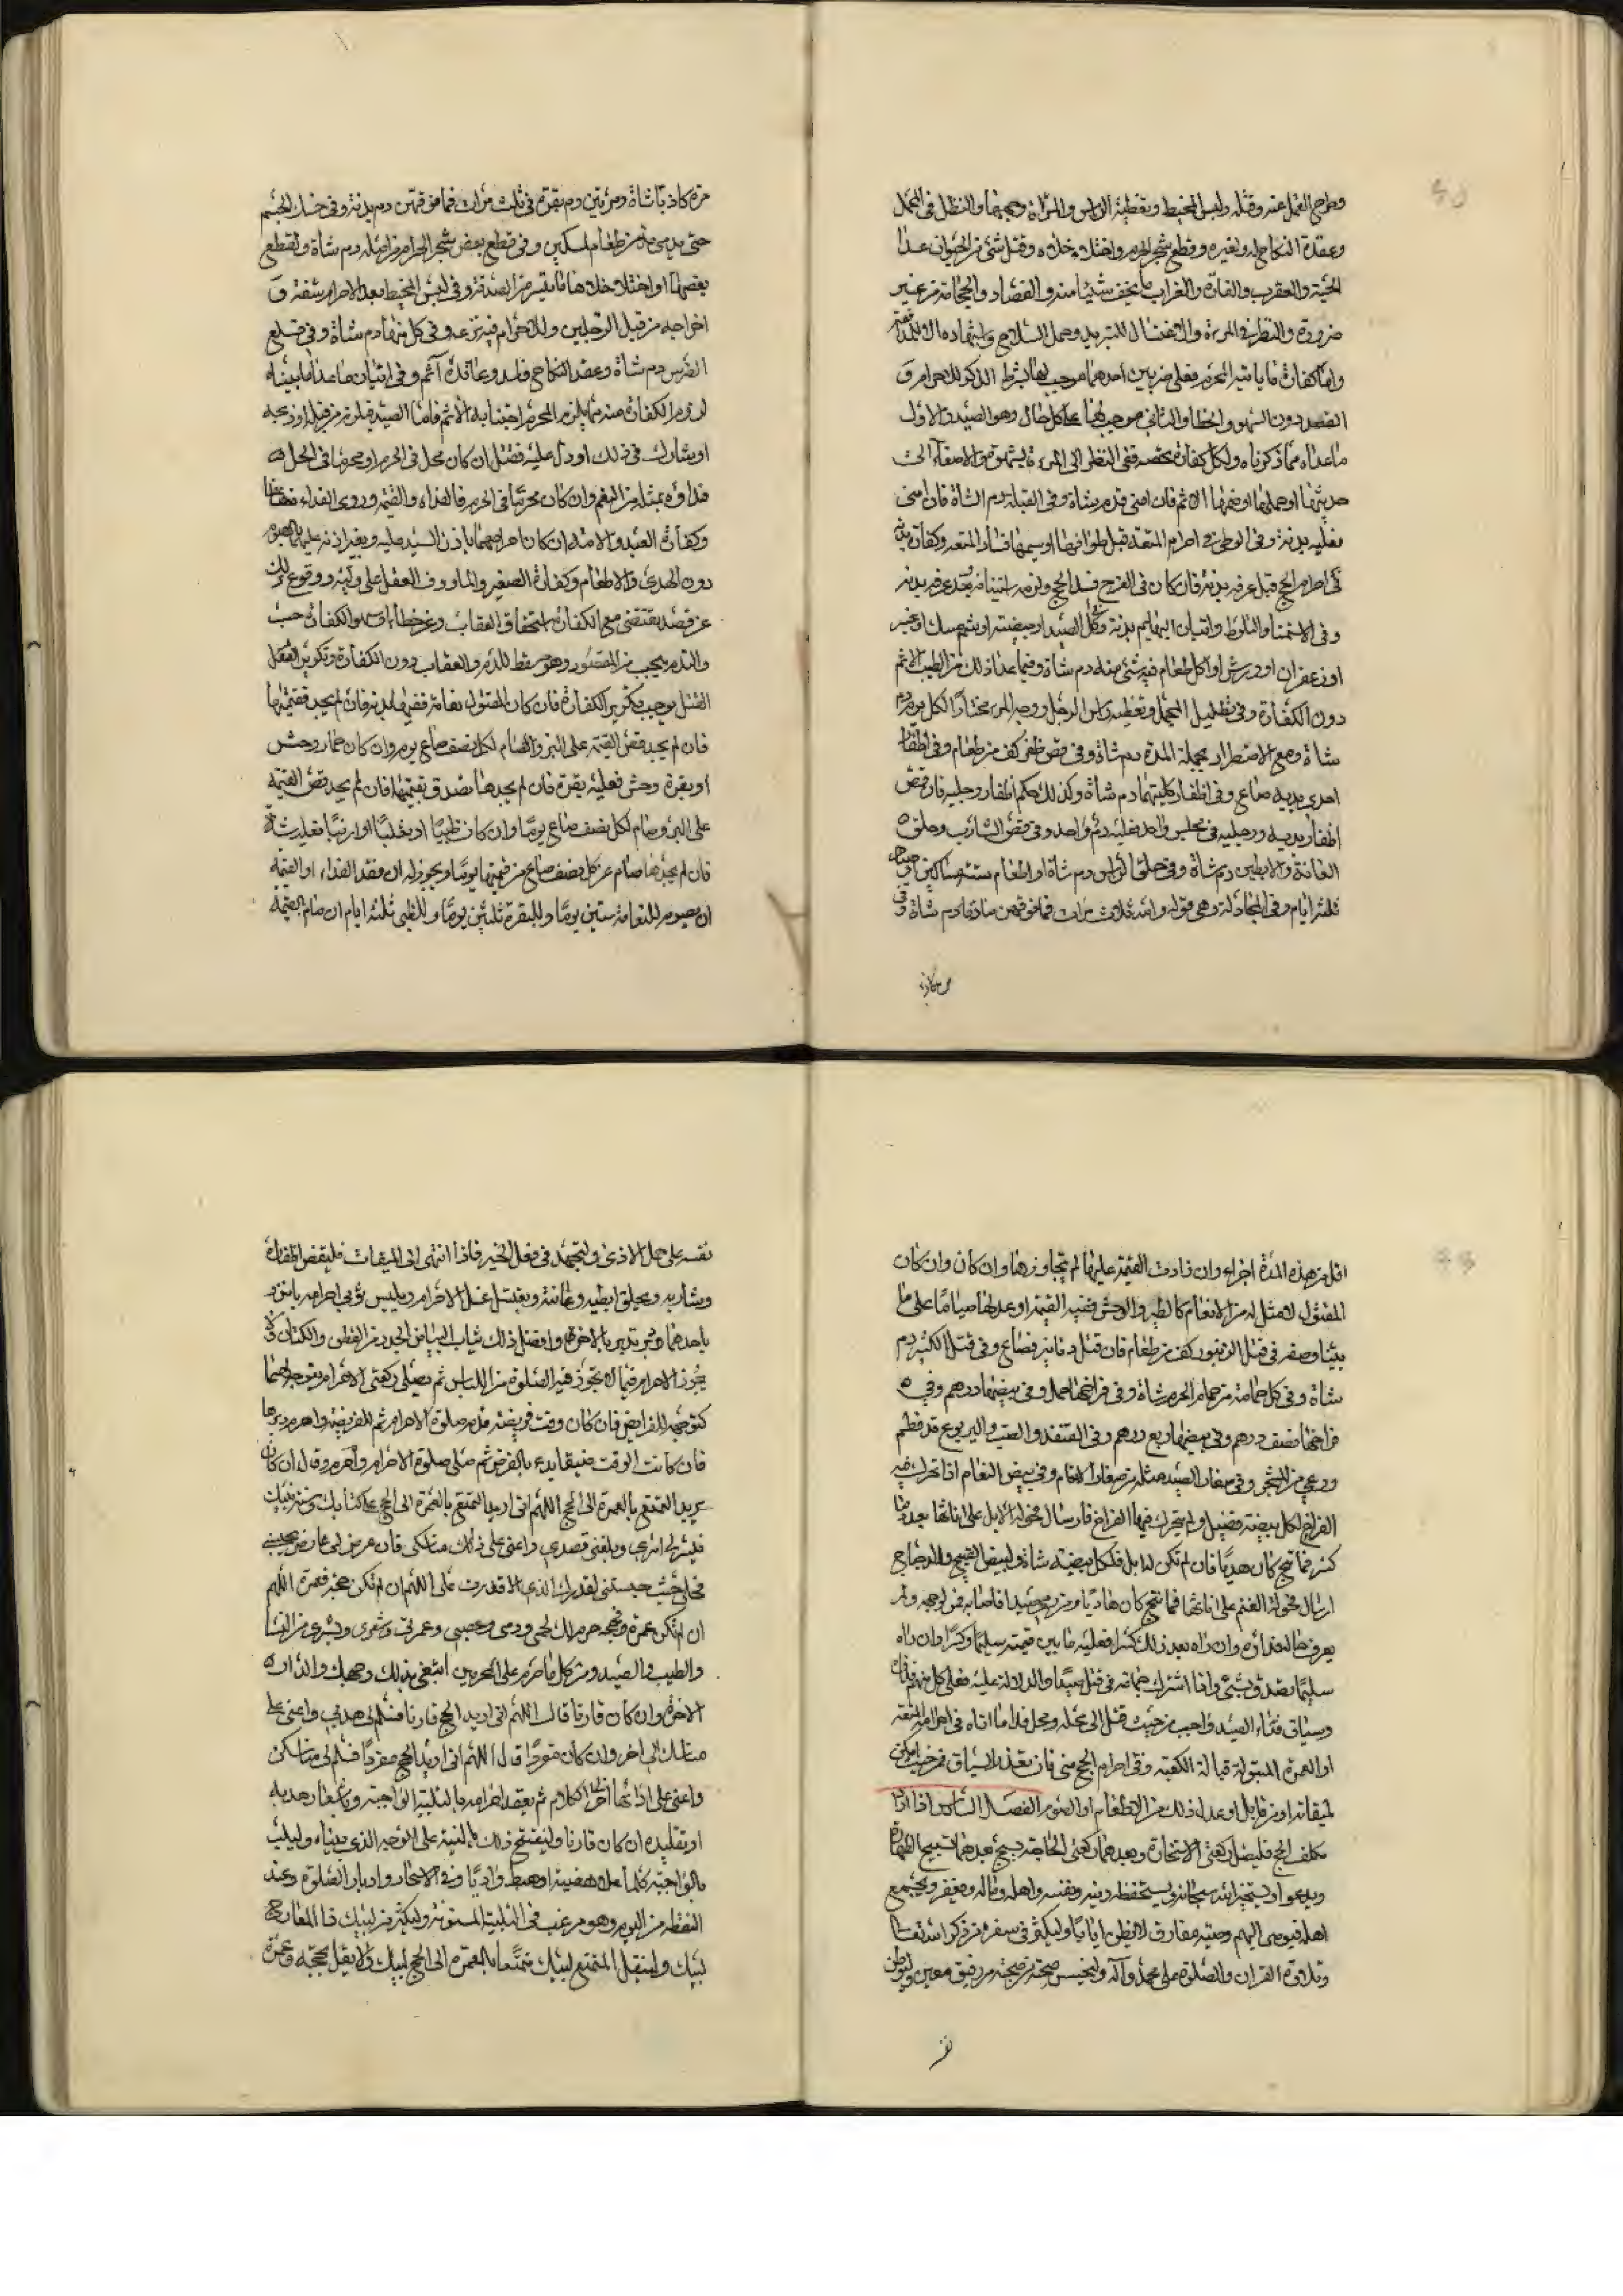 وطرح القمل عنه وقتله ولبس المخيط وتغطية الراس والمرأة وجهها والتظلل في المحمل
وعقدة النكاح له ولغيره وقطع شجر الحرم واختلاء خلاه وقتل شئ من الحيوان عدا
الحية والعقرب والفارة والغراب ما لم يخف شيئا منه والفصاد والحجامة من غير
ضرورة والنظر في المرءة والاغتسال للتبريد وحمل السلاح واشهاره الا
واما كفارة ما ياتيه المحرم فعلى ضربين احدهما موجب لها بشرط الذكر للاحرام و
القصد دون السهو والخطاء والثاني موجب لها على كل حال وهو الصيد والاول
ما عداه مما ذكرناه ولكل كفارة تخصه ففي النظر الى المرءة بشهوة والاصغاء الى
حديثها او حملها او ضمها الاثم فان امنى فدم شاة وفي القبلة دم الشاة فان امنى
فعليه بدنة وفي الوطي في احرام المتعة قبل طوافها او سعيها فساد المتعة وكفارة بدنة
في احرام الحج قبل عرفة بدنة فان كان في الفرج فسد الحج ولزمه استينافه وبعد عرفة بدنة
وفي الاستمنا والتلوط واتيان البهايم بدنة وفي اكل الصيد او بيضته او شم مسك او عنبر
او زعفران او ورس او اكل طعام فيه شئ منه دم شاة وفيما عدا ذلك من الطيب الاثم
دون الكفارة وفي تظليل المحمل وتغطية راس الرجل ووجه المرءة مختارا لكل يوم دم
شاة ومع الاضطرار بجملة المدة دم شاة وفي قص ظفر كف من طعام وفي اظفار
احدى يديه صاع وفي اظفار كلتيهما دم شاة وكذلك حكم اظفار رجليه فان قص
اظفار يديه ورجليه في مجلس واحد فعليه دم واحد وفي قص الشارب وحلق
العانة والابطين دم شاة وفي حلق الراس دم شاة او اطعام ستة مساكين او صيام
ثلثة ايام وفي المجادلة وهي قوله والله ثلاث مرات فما فوقهن صادقا دم شاة وفي
مرة كاذبا شاة ومرتين دم بقرة وفي ثلث مرات فما فوقهن دم بدنة وفي حك الجسم
حتى يدمى مد من طعام لمسكين وفي قطع بعض شجر الحرم من اصله دم شاة ولقطع
بعضها او اختلاء خلاها ما تيسر من الصدقة وفي لبس المخيط بعد الاحرام شقه و
اخراجه من قبل الرجلين وللاحرام فيه نزعه وفي كل منهما دم شاة وفي قلع
الضرس دم شاة وعقد النكاح فاسد وعاقده آثم وفي اتيان ما عدا ما بيناه
لزوم الكفارة منه مما يلزم المحرم اجتنابه الاثم فاما الصيد فيلزم من قتله او ذبحه
او شارك في ذلك او دل عليه فقتل ان كان محل في الحرم او محرما في الحل
فداؤه بمثله من النعم وان كان محرما في الحرم فالفداء والقيمة وروى الفداء مضاعفا
وكفارة العبد والامة ان كان احرامهما باذن السيد عليه وبغير اذنه عليهما الصوم
دون الهدى والاطعام وكفارة الصغير والماووف العقل على وليه ووقوع ذلك
عن قصد يقتضى مع الكفارة استحقاق العقاب وعن خطاء او سهو الكفارة حسب
والندم يجب من المقصود وهو مسقط للذم والعقاب دون الكفارة وتكرير الفعل
القتل يوجب تكرير الكفارة فان كان المقتول نعامة ففيها بدنة فان لم يجد فقيمتها
فان لم يجد فض القيمة على البر وصام لكل نصف صاع يوم وان كان حمار وحش
او بقرة وحش فعليه بقرة فان لم يجدها تصدق بقيمتها فان لم يجد فض القيمة
على البر وصام لكل نصف صاع يوما وان كان ظبيا او ثعلبا او ارنبا فعليه شاة
فان لم يجدها صام عن كل نصف صاع من قيمتها يوما ويجوز له ان فقد الفداء او القيمة
ان يصوم للنعامة ستين يوما وللبقرة ثلثين يوما وللظبي ثلثة ايام ان صام بالقيمة
اقل من هذه المدة اجزاء وان زادت القيمة عليها لم يتجاوزها وان كان وان كان
المقتول لا مثل له من الانعام كالطير والوحش ففيه القيمة او عدلها صياما على ما
بينا وصفه وفي قتل الزنبور كف من طعام فان قتل دنانير فصاع وفي قتل الكثير دم
شاة وفي كل حمامة من حمام الحرم شاة وفي فراخها حمل وفي بيضها درهم وفي
فراخها نصف درهم وفي بيضها ربع درهم وفي القنفذ والضب واليربوع حمل قد فطم
ورعى من الشجر وفي صغار الصيد مثله من صغار الانعام وفي بيض النعام اذا تحرك فيه
الفراخ لكل بيضة فصيل ولم يتحرك فيها الفراخ فارسال فحولة الابل على اناثها بعدد ما
كسر فما نتج كان هديا فان لم تكن له ابل فلكل بيضة شاة ولبيض القبج والدجاج
ارسال فحولة الغنم على اناثها فما نتج كان هاديا ومن رمى صيدا فاصابه فمر لوجهه ولم
يعرف حاله فداؤه وان راه بعد ذلك كسيرا فعليه ما بين قيمته سليما وكسيرا وان راه
سليما تصدق بشئ واذا اشترك جماعة في قتل صيد او الدلالة عليه فعلى كل منهم فداه
وسياق فداء الصيد واجب من حيث قتل الى محله ومحل فداء ما اتاه في احرام المتعة
او العمرة المبتولة قبالة الكعبة وفي احرام الحج منى فان تعذر السياق فمن حيث امكن
لميقاته او من قابل او عدل ذلك من الاطعام او الصوم الفصل الثالث اذا اراد
مكلف الحج فليصل ركعتي الاستخارة وبعدهما ركعتي الحاجة يسبح بعدهما تسبيح الطهارة
ويدعو او يستخير الله سبحانه ويستحفظه دينه ونفسه واهله وماله وسفره ويجمع
اهله فيوصى اليهم وصية مفارق لا يظن ايابا وليكثر في سفره من ذكر الله تعالى
وتلاوة القران والصلوة على محمد وآله وليحسن صحبة من صحبه من رفيق ومعين وليوطن
نفسه على حمل الاذى وليجتهد في فعل الخير فاذا انتهى الى الميقات فليقص اظفاره
وشاربه ويحلق ابطيه وعانته ويغتسل غسل الاحرام ويلبس ثوبى احرامه ياتزر
باحدهما ويرتدي بالاخرة وافضل ذلك ثياب البياض الجدد من القطن والكتان ولا
يجوز الاحرام فيما لا يجوز فيه الصلوة من اللباس ثم يصلى ركعتى الاحرام يتوجه لهما
كتوجهه للفرايض فان كان وقت فريضة قدم صلوة الاحرام ثم للفريضة واحرم دبرها
فان كانت الوقت ضيقا بدء بالفرض ثم صلى صلوة الاحرام واحرم وقال ان كان
يريد التمتع بالعمرة الى الحج اللهم انى اريد التمتع بالعمرة الى الحج على كتابك وسنة نبيك
فيسر لى امرى وبلغنى قصدي واعنى على ذلك مناسكى فان عرض لى عارض يحبسنى
فحلني حيث حبستنى لقدرك الذي قدرت على اللهم ان لم تكن حجة فعمرة اللهم
ان لم تكن عمرة فحجة حرم لك لحمى ودمى وعصبى وعروقى وشعرى وبشرى من النساء
والطيب والصيد ومن كل ما حرم على المحرمين ابتغى بذلك وجهك والدار
الاخرة وان كان قارنا قال اللهم انى اريد الحج قارنا فسلم لى هديى واعنى على
مناسك الى اخره وان كان مفردا قال اللهم انى اريد الحج مفردا فسلم لى مناسكى
واعنى على ادائها الى اخر الكلام ثم يعقد احرامه بالتلبية الواجبة وباشعار هديه
او تقليده ان كان قارنا وليفتتح ذلك بالنية على الوجه الذي بيناه وليلب
بالواجبة كلما علا هضبة او هبط واديا وفي الاسحار وادبار الصلوة وعند
اليقظة من النوم وهو مرغب في التلبية المسنونة وليكثر من لبيك ذا المعارج
لبيك وليقل المتمتع لبيك متمتعا بالعمرة الى الحج لبيك ولا يقل بحجة وعمرة